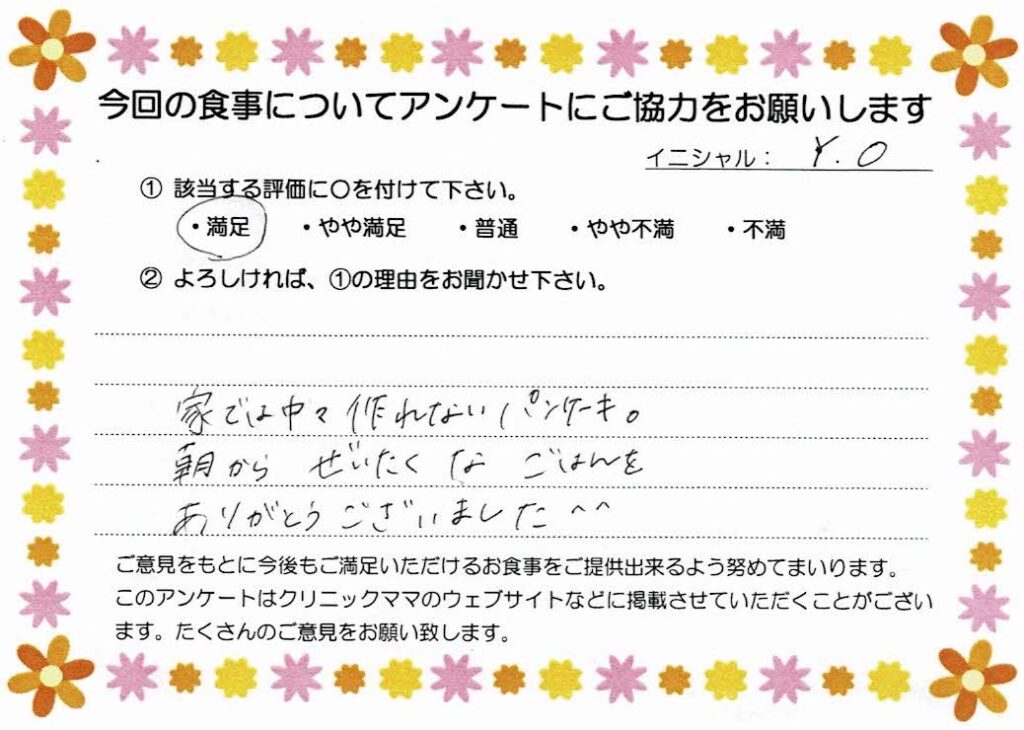 今回の食事についてアンケートにご協力をお願いします
イニシャル： Y.O
① 該当する評価に〇を付けて下さい。
・満足 ・やや満足 ・普通 ・やや不満 ・不満
② よろしければ、①の理由をお聞かせ下さい。
家では中々作れないパンケーキ。
朝から ぜいたくな ごはんを
ありがとうございました^^
ご意見をもとに今後もご満足いただけるお食事をご提供出来るよう努めてまいります。
このアンケートはクリニックママのウェブサイトなどに掲載させていただくことがござい
ます。たくさんのご意見をお願い致します。